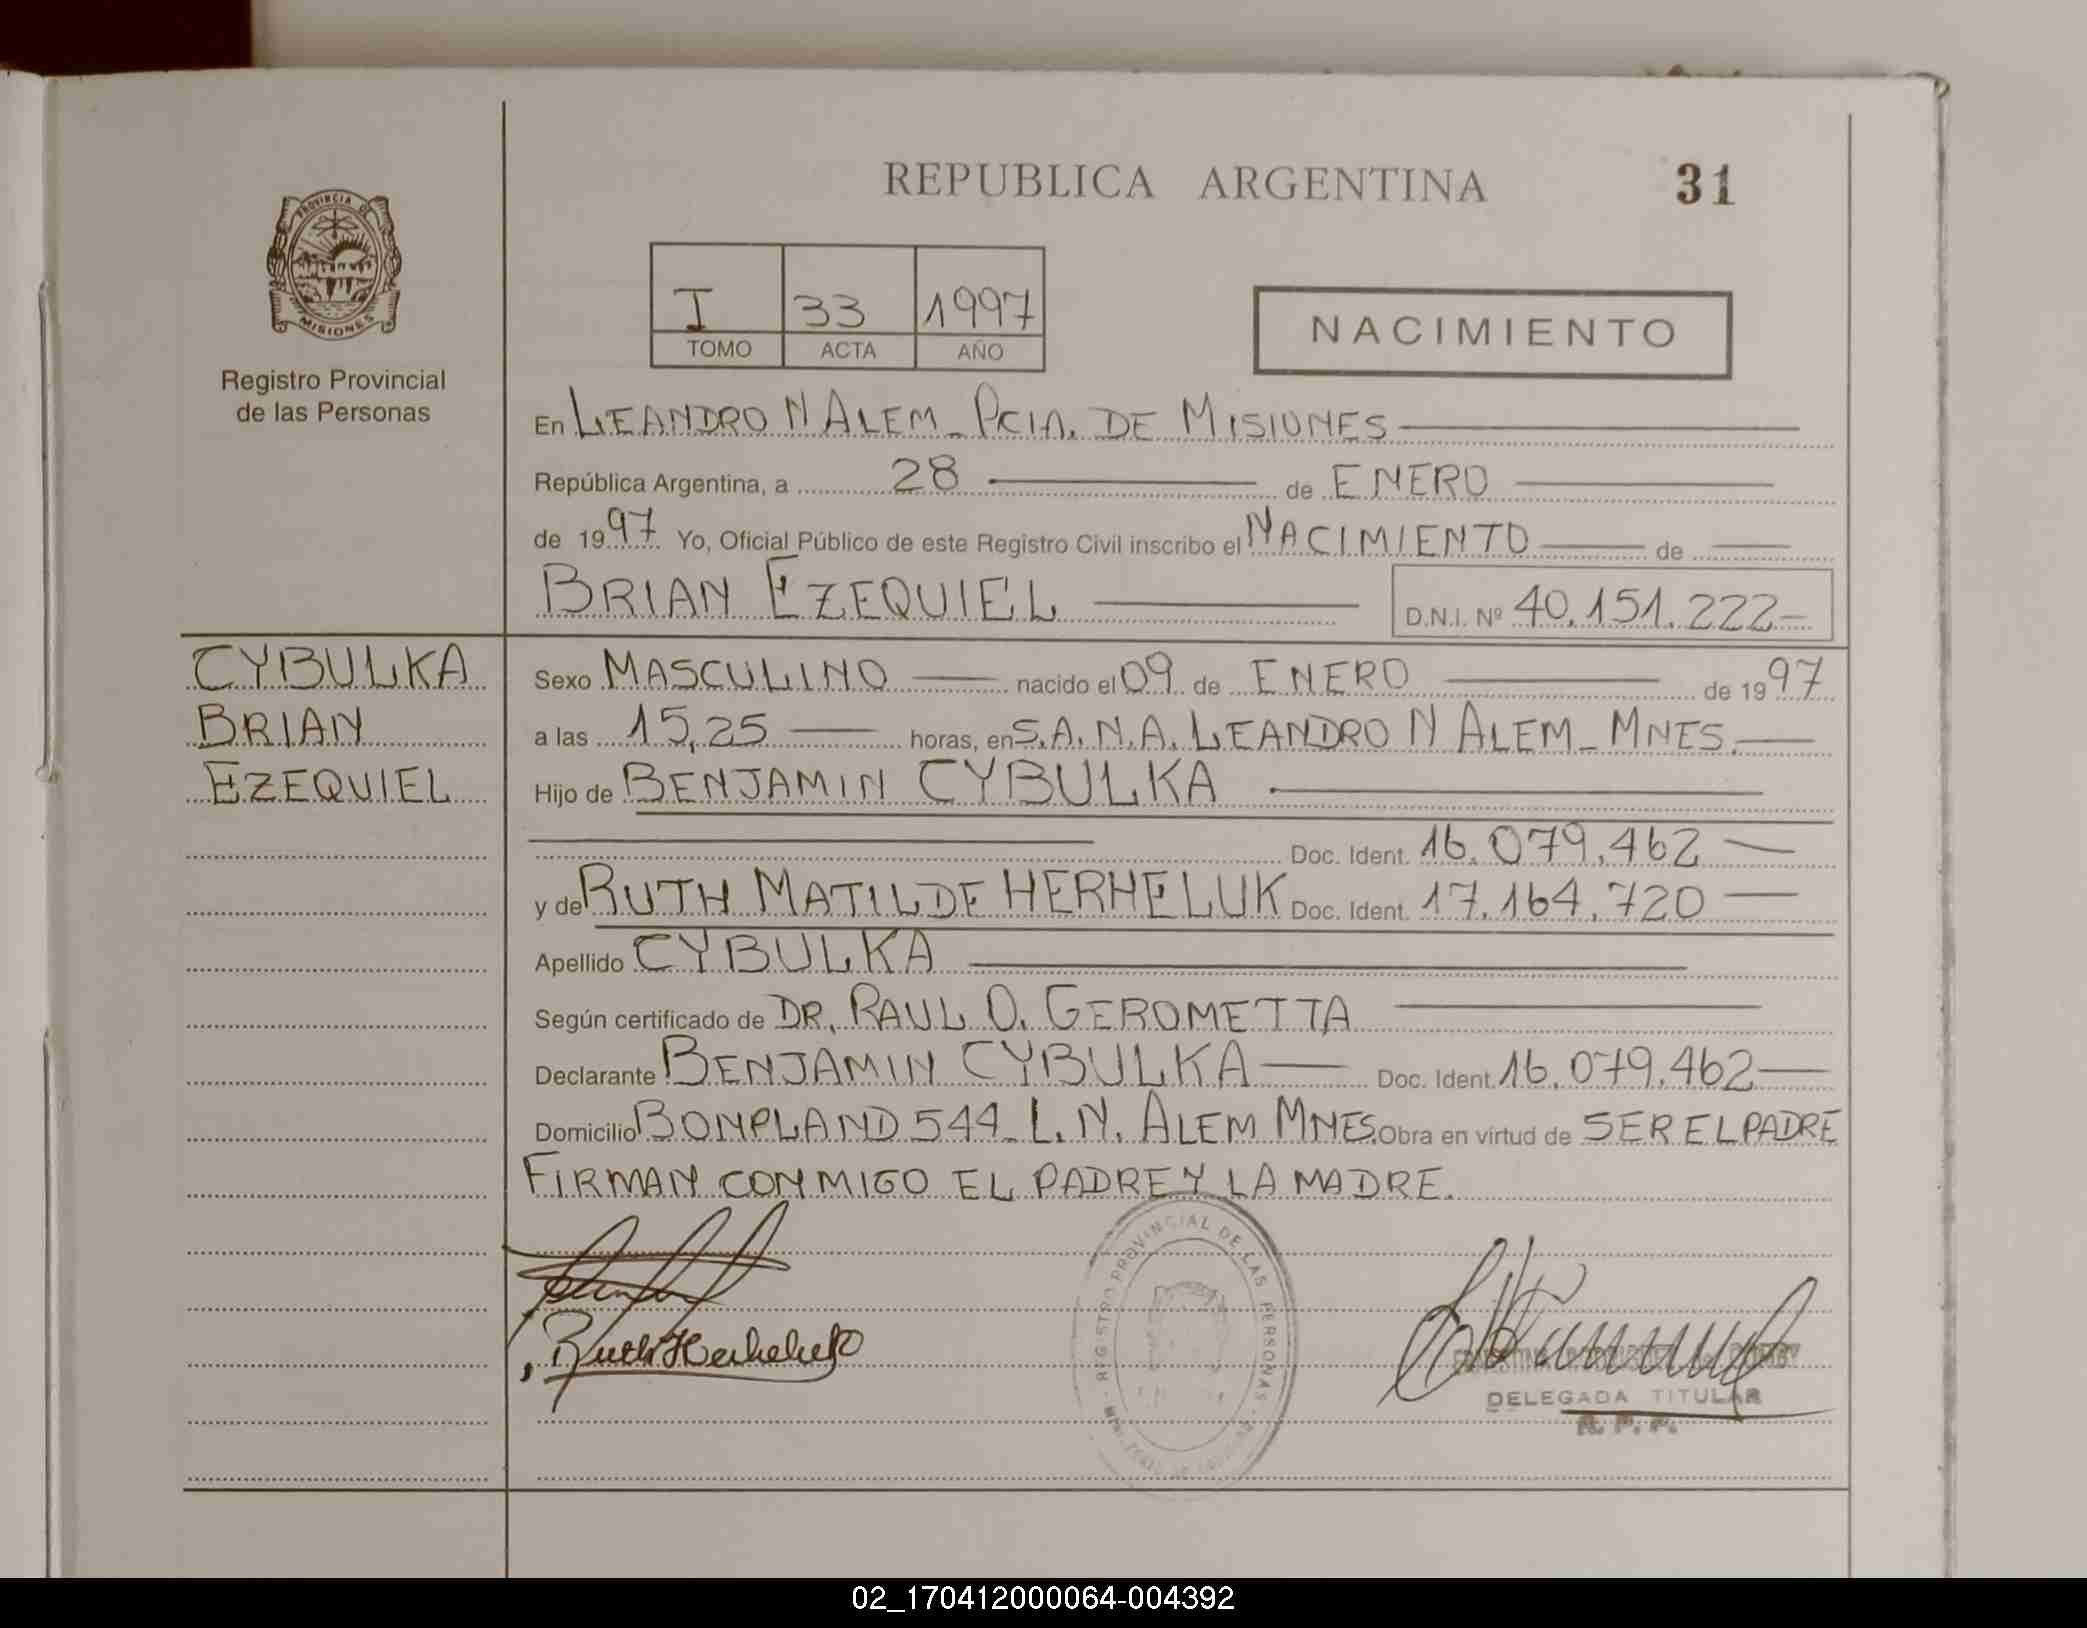 REPUBLICA ARGENTINA 31
PROVINCIA DE
MISIONES
Registro Provincial
de las Personas
I 33 1997
TOMO ACTA AÑO
NACIMIENTO
En LEANDRO N ALEM - PCIA. DE MISIONES
República Argentina, a 28 de ENERO
de 1997 Yo, Oficial Público de este Registro Civil inscribo el NACIMIENTO de
BRIAN EZEQUIEL D.N.I. Nº 40.151.222-
CYBULKA
BRIAN
EZEQUIEL
Sexo MASCULINO nacido el 09 de ENERO de 1997
a las 15,25 horas, en S.A.N.A. LEANDRO N ALEM - MNES.
Hijo de BENJAMIN CYBULKA
Doc. Ident. 16.079.462
y de RUTH MATILDE HERHELUK Doc. Ident. 17.164.720
Apellido CYBULKA
Según certificado de DR. RAUL O. GEROMETTA
Declarante BENJAMIN CYBULKA Doc. Ident. 16.079.462
Domicilio BONPLAND 544 - L.N. ALEM MNES. Obra en virtud de SER EL PADRE
FIRMAN CONMIGO EL PADRE Y LA MADRE.
Ruth Herheluk
REGISTRO PROVINCIAL DE LAS PERSONAS
DELEGADA TITULAR
R. P. P.
02_170412000064-004392